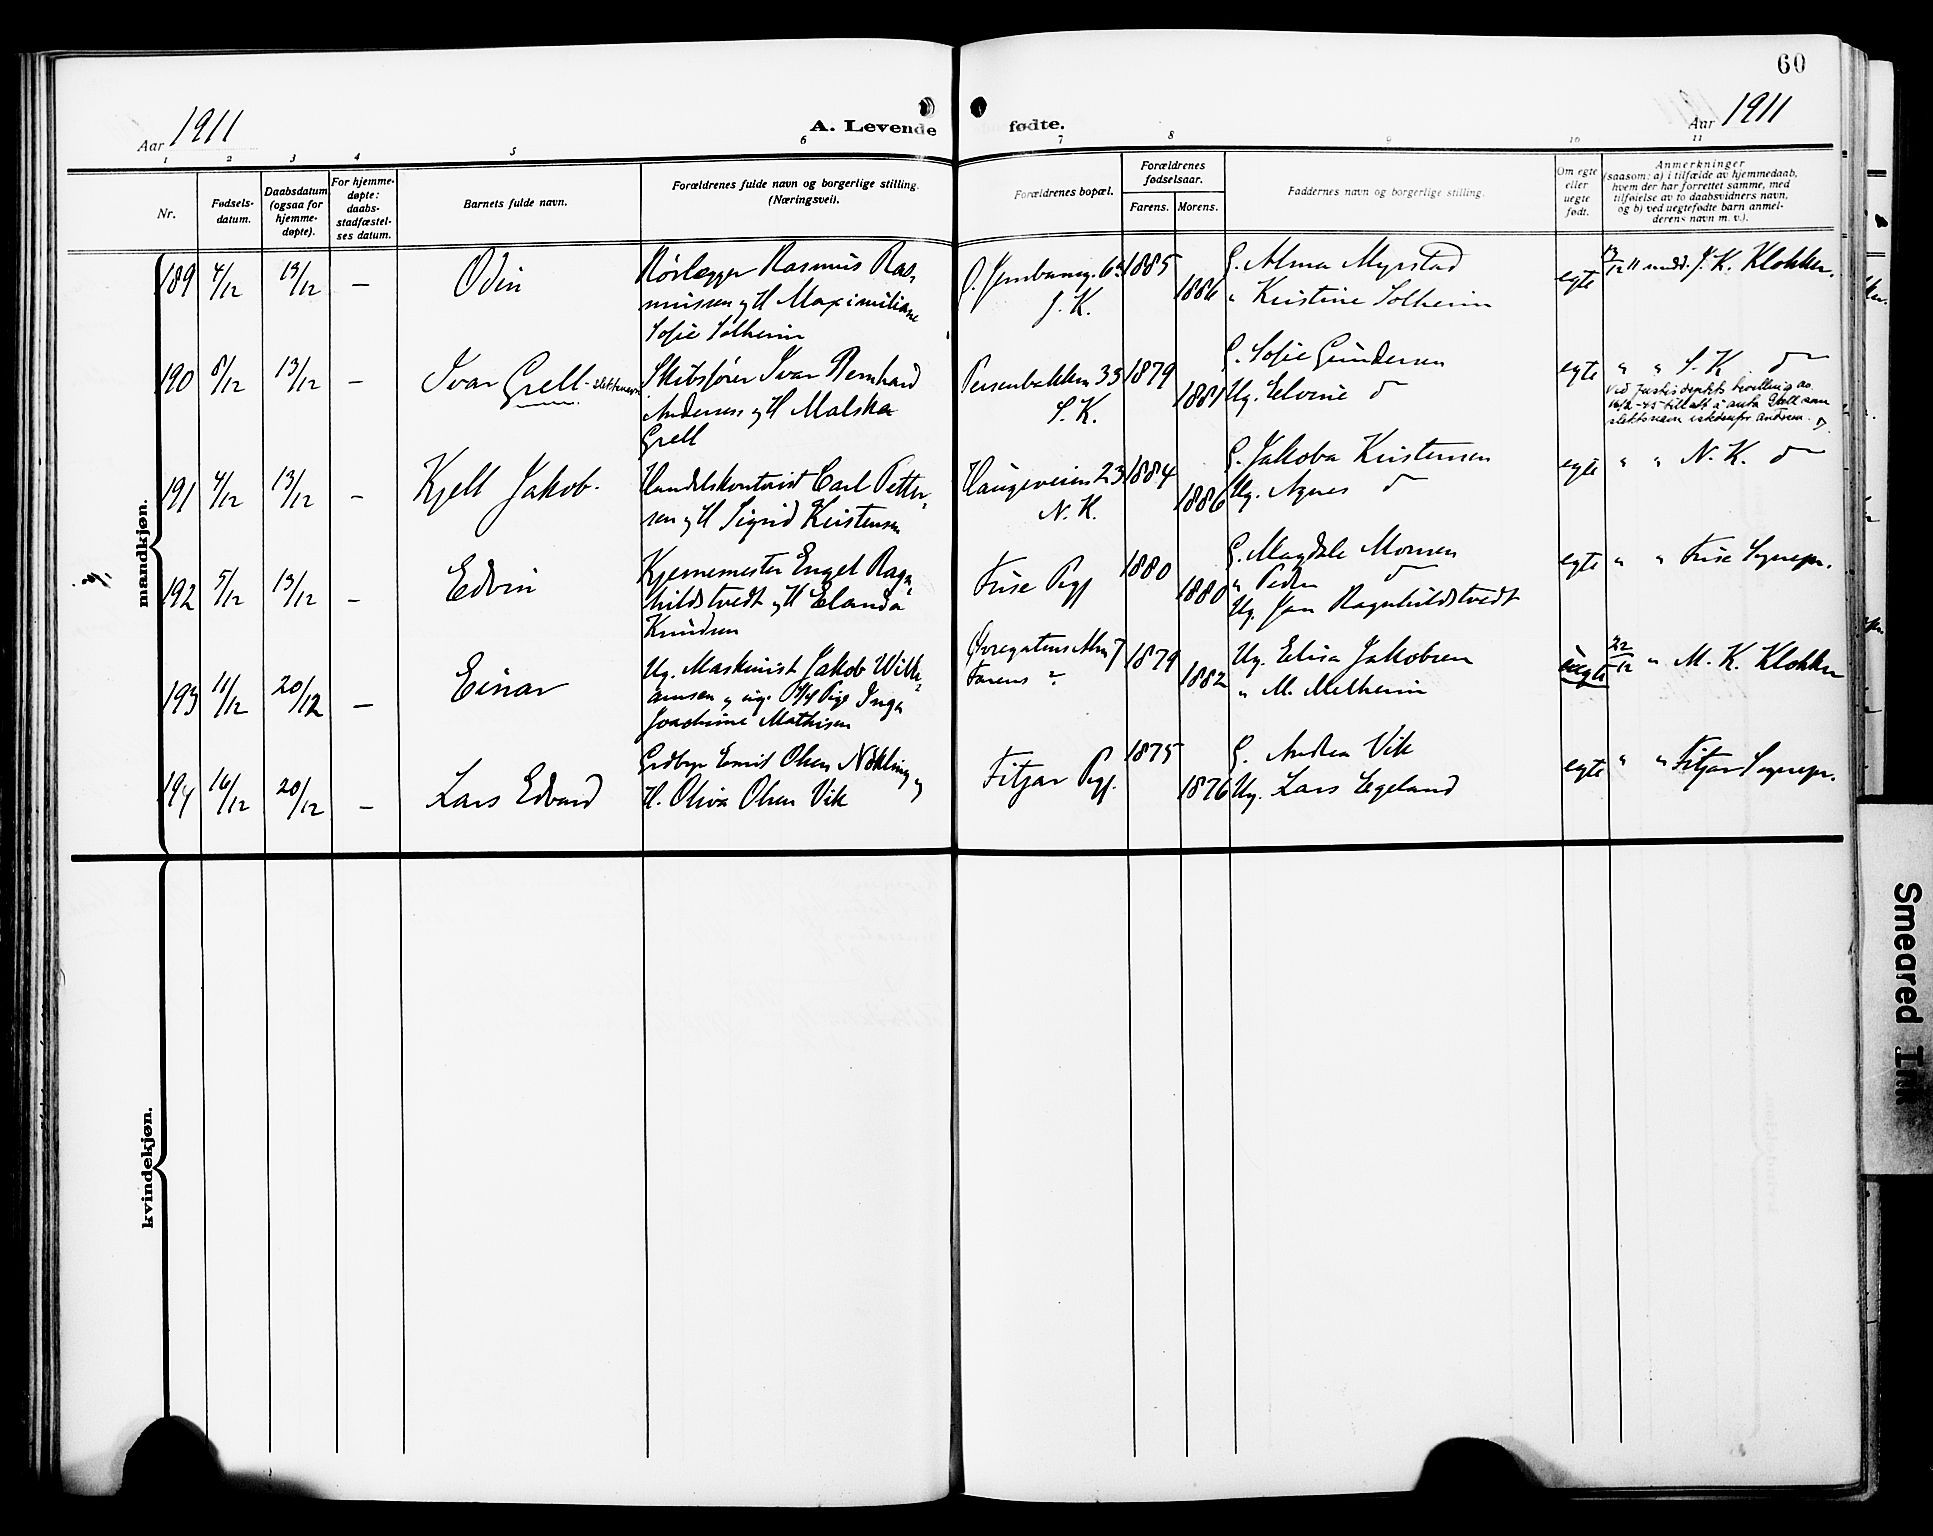 60
Aar 1911
A. Levende
fødte.
Aar 1911
1 2 3 4 5 6 7 8 9 10 11
Nr.
Fødsels-
datum.
Daabsdatum
(ogsaa for
hjemme-
døpte).
For hjemme-
døpte:
daabs-
stadfæstel-
ses datum.
Barnets fulde navn.
Forældrenes fulde navn og borgerlige stilling.
(Næringsvei).
Forældrenes bopæl.
Forældrenes
fødselsaar.
Farens. Morens.
Faddernes navn og borgerlige stilling.
Om egte
eller
uegte
født.
Anmerkninger
(saasom: a) i tilfælde av hjemmedaab,
hvem der har forrettet samme, med
tilføielse av to daabsvidners navn,
og b) ved uegtefødte barn anmel-
derens navn m. v.).
mandkjøn.
189 4/12 13/12 – Odin
Rørlægger Rasmus Ras-
mussen og H Maximiliane
Sofie Solheim
J. K.
1885
1886
G. Alma Myrstad
" Kristine Solheim
egte
13/12 11 medd. J. K. Klokker.
190 8/12 13/12 – Ivar Grell - slektsnavn
Skibsfører Ivar Bernhard
Andersen og H Malska
Grell
Persenbakken 33
S. K.
1879
1881
G. Sofie Gundersen
Ug. Elvine d
egte
" " S. K. d
Ved Justisdeptets bevilling av
16/2-45 tillatt å anta Grell som
slektsnavn istedenfor Andersen.
191 4/12 13/12 – Kjell Jakob.
Handelskontorist Carl Petter-
sen og H Sigrid Kristensen
Haugeveien 23
N. K.
1884
1886
G. Jakoba Kristensen
Ug. Agnes d
egte
" " N. K. d
192 5/12 13/12 – Edvin
Kjernemester Engel Ragn-
hildstvedt og H Elanda
Knudsen
Fuse Pgj
1880
1880
G. Magdale Monsen
" Peder d
Ug. Jan Ragnhildstvedt
egte
" " Fuse Sognepr.
193 11/12 20/12 – Einar
Ug. Maskinist Jakob Willi-
amsen og ug. Pige Inga
Joachime Mathisen
Øvregatens Alm 7
Farens ?
1879
1882
Ug. Elisa Jakobsen
" M. Melheim
uegte
22/12 " M. K. Klokker
194 16/12 20/12 – Lars Edvard
Grdbr Emil Olsen Nøkling og
H. Oliva Olsen Vik
Fitjar Pgj.
1875
1876
G. Andrea Vik
Ug. Lars Egeland
egte
" " Fitjar Sognepr.
kvindekjøn.
Smeared Ink